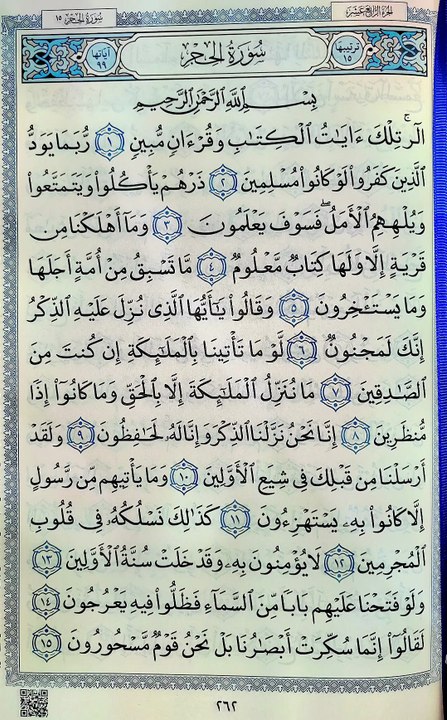 سُورَةُ الحِجْرِ ١٥
الجُزءُ الرَّابِعَ عَشَرَ
ترتيبها ١٥
سُورَةُ الحِجْرِ
آياتها ٩٩
بِسْمِ ٱللَّهِ ٱلرَّحْمَٰنِ ٱلرَّحِيمِ
الٓر ۚ تِلْكَ ءَايَٰتُ ٱلْكِتَٰبِ وَقُرْءَانٍ مُّبِينٍ ١ رُّبَمَا يَوَدُّ
ٱلَّذِينَ كَفَرُوا۟ لَوْ كَانُوا۟ مُسْلِمِينَ ٢ ذَرْهُمْ يَأْكُلُوا۟ وَيَتَمَتَّعُوا۟
وَيُلْهِهِمُ ٱلْأَمَلُ ۖ فَسَوْفَ يَعْلَمُونَ ٣ وَمَآ أَهْلَكْنَا مِن
قَرْيَةٍ إِلَّا وَلَهَا كِتَابٌ مَّعْلُومٌ ٤ مَّا تَسْبِقُ مِنْ أُمَّةٍ أَجَلَهَا
وَمَا يَسْتَـْٔخِرُونَ ٥ وَقَالُوا۟ يَٰٓأَيُّهَا ٱلَّذِى نُزِّلَ عَلَيْهِ ٱلذِّكْرُ
إِنَّكَ لَمَجْنُونٌ ٦ لَّوْ مَا تَأْتِينَا بِٱلْمَلَٰٓئِكَةِ إِن كُنتَ مِنَ
ٱلصَّٰدِقِينَ ٧ مَا نُنَزِّلُ ٱلْمَلَٰٓئِكَةَ إِلَّا بِٱلْحَقِّ وَمَا كَانُوٓا۟ إِذًا
مُّنظَرِينَ ٨ إِنَّا نَحْنُ نَزَّلْنَا ٱلذِّكْرَ وَإِنَّا لَهُۥ لَحَٰفِظُونَ ٩ وَلَقَدْ
أَرْسَلْنَا مِن قَبْلِكَ فِى شِيَعِ ٱلْأَوَّلِينَ ١٠ وَمَا يَأْتِيهِم مِّن رَّسُولٍ
إِلَّا كَانُوا۟ بِهِۦ يَسْتَهْزِءُونَ ١١ كَذَٰلِكَ نَسْلُكُهُۥ فِى قُلُوبِ
ٱلْمُجْرِمِينَ ١٢ لَا يُؤْمِنُونَ بِهِۦ وَقَدْ خَلَتْ سُنَّةُ ٱلْأَوَّلِينَ ١٣
وَلَوْ فَتَحْنَا عَلَيْهِم بَابًا مِّنَ ٱلسَّمَآءِ فَظَلُّوا۟ فِيهِ يَعْرُجُونَ ١٤
لَقَالُوٓا۟ إِنَّمَا سُكِّرَتْ أَبْصَٰرُنَا بَلْ نَحْنُ قَوْمٌ مَّسْحُورُونَ ١٥
٢٦٢